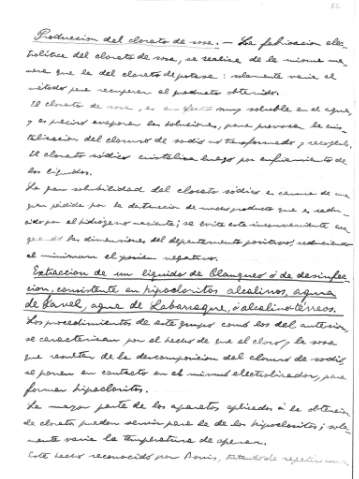 Produccion del clorato de sosa. — La fabricacion elec-
trolitica del clorato de sosa, se realiza de la misma ma-
nera que la del clorato de potasa: solamente varia el
método para recuperar el producto obtenido.
El clorato de sosa, es en muy soluble en el agua,
y es preciso evaporar las soluciones, para provocar la cris-
talizacion del cloruro de sodio no transformado y recogerlo.
El clorato sódico cristaliza luego por enfriamiento de
los líquidos.
La gran solubilidad del clorato sódico es causa de una
gran pérdida por la destruccion de mucho producto que es redu-
cido por el hidrógeno naciente; se evita este inconveniente
las dimensiones del departamento positivo, reduciendo
al minimum el positivo negativo.
Extraccion de un líquido de blanqueo ó de desinfec-
cion, consistente en hipocloritos alcalinos, agua
de Javel, agua de Labarraque, ó alcalino-térreos.
Los procedimientos de este grupo como los del anterior,
se caracterizan por el hecho de que el cloro y la sosa
que resultan de la descomposicion del cloruro de sodio,
se ponen en contacto en el mismo electrolizador, para
formar hipocloritos.
La mayor parte de los aparatos aplicados á la obtencion
de clorato pueden servir para la de los hipocloritos; sola-
mente varia la temperatura de operar.
Este hecho reconocido por